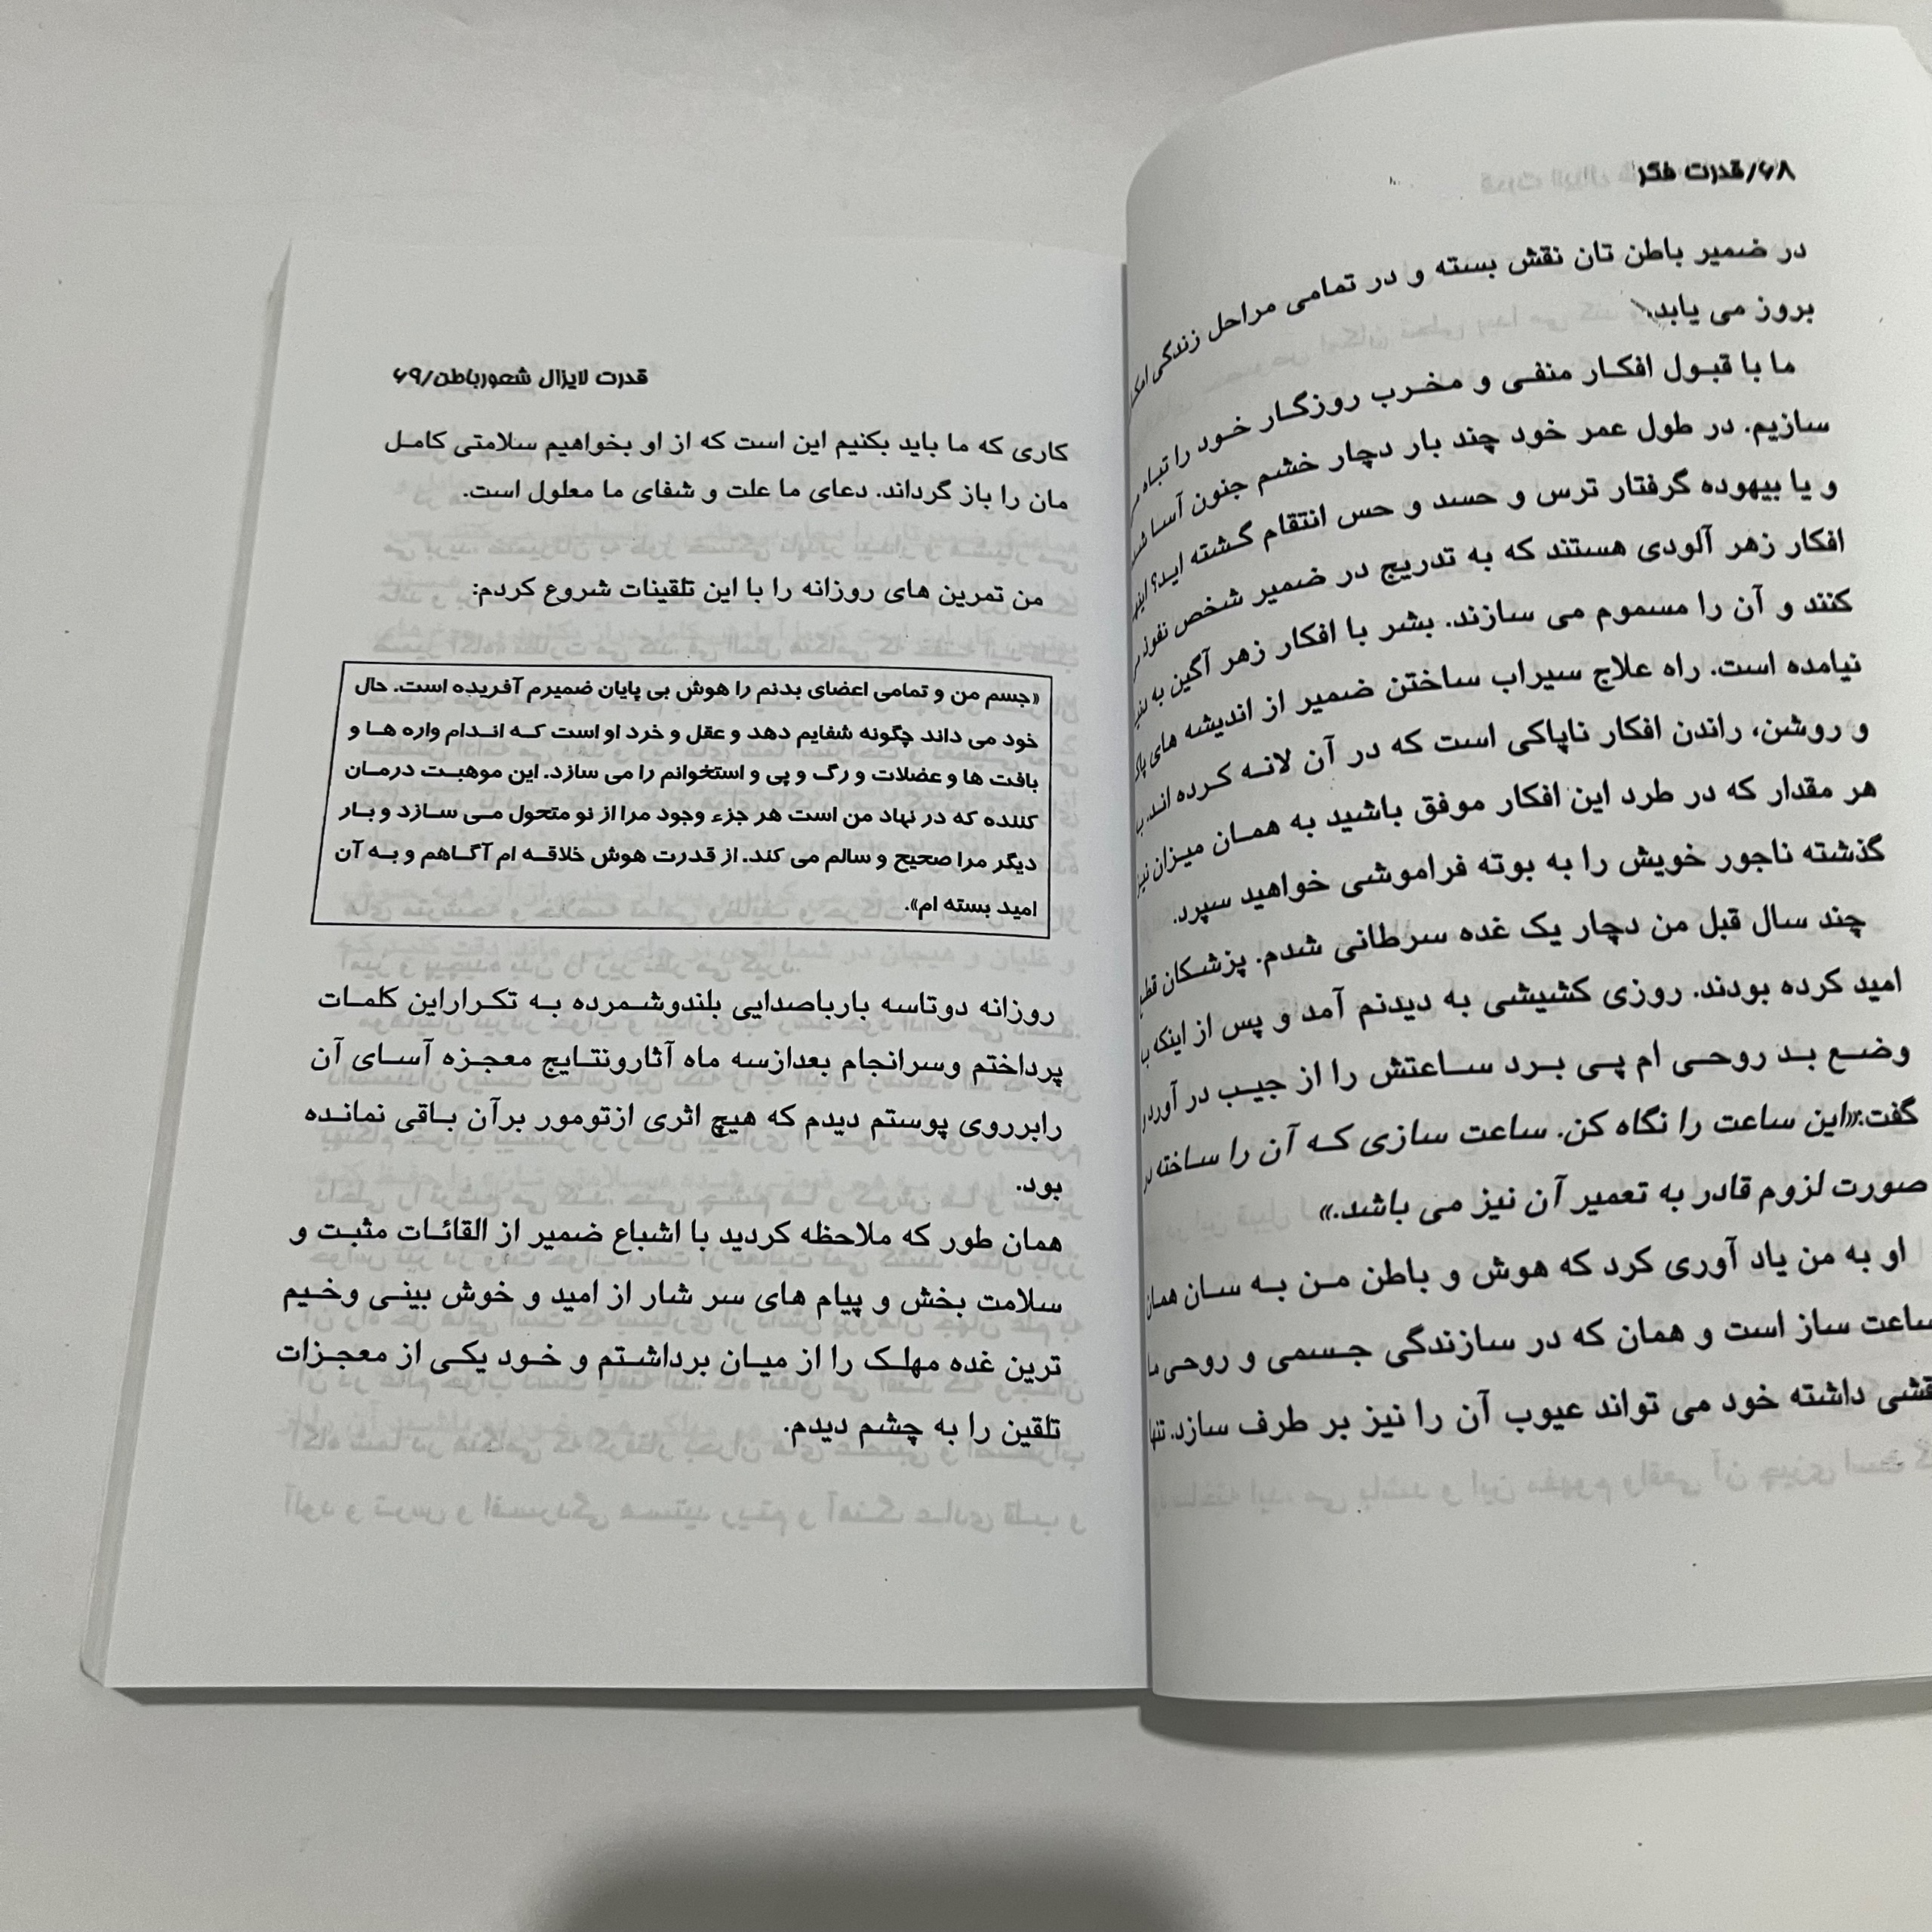 ۶۸/قدرت فکر
در ضمیر باطن تان نقش بسته و در تمامی مراحل زندگی
بروز می یابد.
ما با قبول افکار منفی و مخرب روزگار خود را تباه
سازیم. در طول عمر خود چند بار دچار خشم جنون آسا
و یا بیهوده گرفتار ترس و حسد و حس انتقام گشته اید؟
افکار زهر آلودی هستند که به تدریج در ضمیر شخص نفوذ
کنند و آن را مسموم می سازند. بشر با افکار زهر آگین به
نیامده است. راه علاج سیراب ساختن ضمیر از اندیشه های
و روشن، راندن افکار ناپاکی است که در آن لانه کرده اند.
هر مقدار که در طرد این افکار موفق باشید به همان میزان نیز
گذشته ناجور خویش را به بوته فراموشی خواهید سپرد.
چند سال قبل من دچار یک غده سرطانی شدم. پزشکان
امید کرده بودند. روزی کشیشی به دیدنم آمد و پس از اینکه
وضع بد روحی ام پی برد ساعتش را از جیب در آورد
گفت:«این ساعت را نگاه کن. ساعت سازی که آن را ساخته
صورت لزوم قادر به تعمیر آن نیز می باشد.»
او به من یاد آوری کرد که هوش و باطن من به سان همان
ساعت ساز است و همان که در سازندگی جسمی و روحی
داشته خود می تواند عیوب آن را نیز بر طرف سازد. تنها
قدرت لایزال شعورباطن/۶۹
کاری که ما باید بکنیم این است که از او بخواهیم سلامتی کامل
مان را باز گرداند. دعای ما علت و شفای ما معلول است.
من تمرین های روزانه را با این تلقینات شروع کردم:
«جسم من و تمامی اعضای بدنم را هوش بی پایان ضمیرم آفریده است. حال
خود می داند چگونه شفایم دهد و عقل و خرد او است که اندام واره ها و
بافت ها و عضلات و رگ و پی و استخوانم را می سازد. این موهبت درمان
کننده که در نهاد من است هر جزء وجود مرا از نو متحول می سازد و بار
دیگر مرا صحیح و سالم می کند. از قدرت هوش خلاقه ام آگاهم و به آن
امید بسته ام».
روزانه دوتاسه بارباصدایی بلندوشمرده به تکراراین کلمات
پرداختم وسرانجام بعدازسه ماه آثارونتایج معجزه آسای آن
رابرروی پوستم دیدم که هیچ اثری ازتومور برآن باقی نمانده
بود.
همان طور که ملاحظه کردید با اشباع ضمیر از القائات مثبت و
سلامت بخش و پیام های سر شار از امید و خوش بینی وخیم
ترین غده مهلک را از میان برداشتم و خود یکی از معجزات
تلقین را به چشم دیدم.